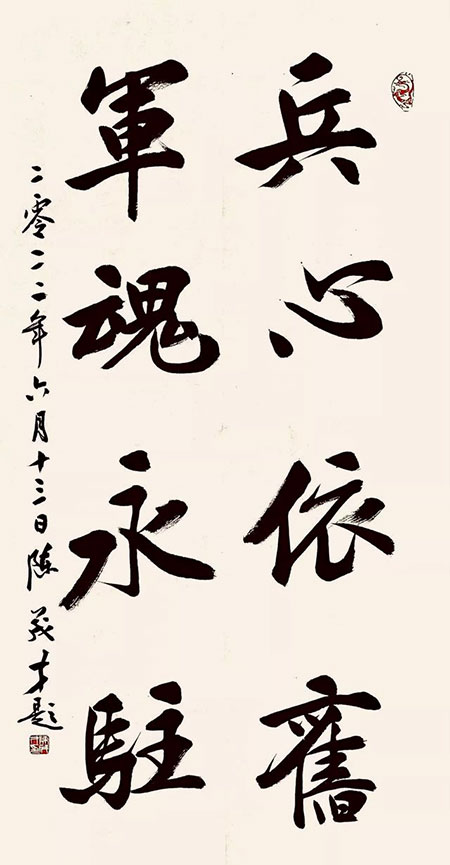 兵心依舊
軍魂永駐
二零二二年六月十三日陳義才題